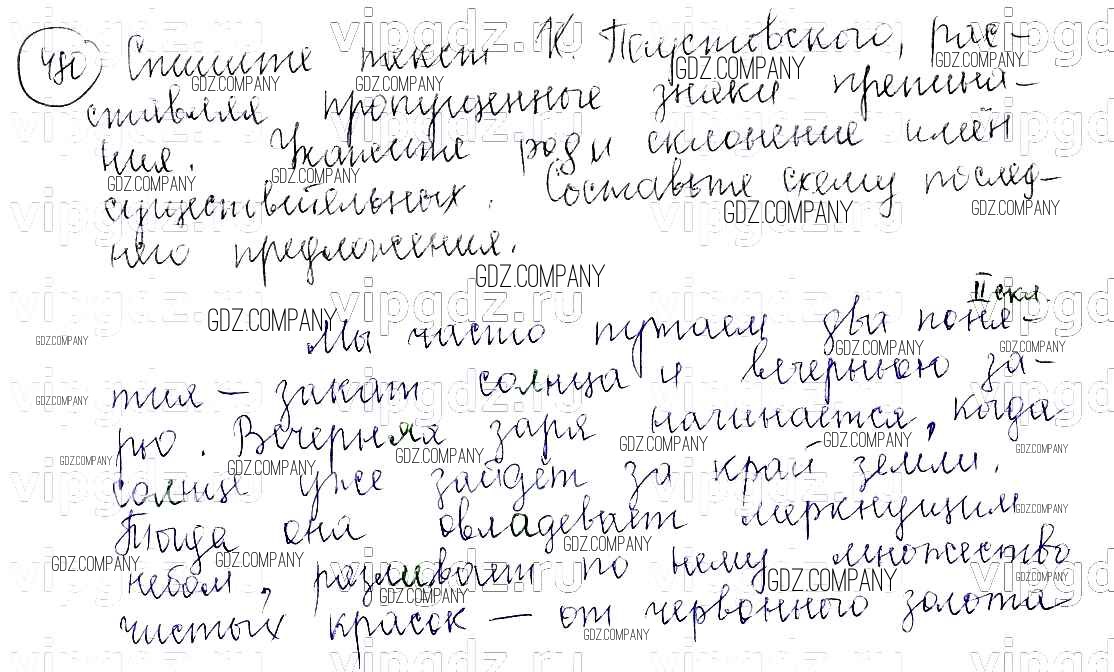 480 Спишите текст К. Паустовского, рас-
ставляя пропущенные знаки препина-
ния. Укажите род и склонение имён
существительных. Составьте схему послед-
него предложения.
II скл.
Мы часто путаем два поня-
тия – закат солнца и вечернюю за-
рю. Вечерняя заря начинается, когда
солнце уже зайдёт за край земли.
Тогда она овладевает меркнущим
небом, разливает по нему множество
чистых красок – от червонного золота